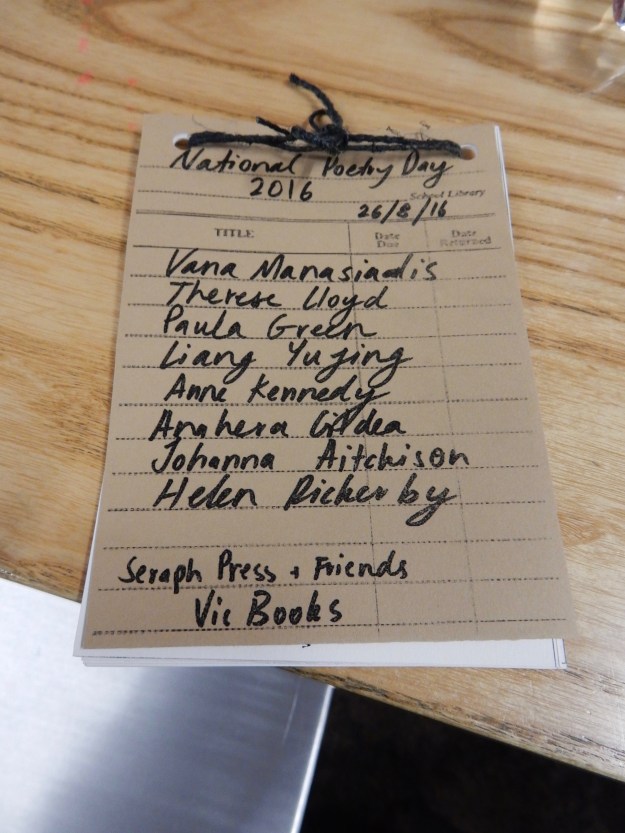 National Poetry Day
2016
School Library
26/8/16
TITLE Date Due Date Returned
Vana Manasiadis
Therese Lloyd
Paula Green
Liang Yujing
Anne Kennedy
Anahera Gildea
Johanna Aitchison
Helen Rickerby
Seraph Press + Friends
Vic Books